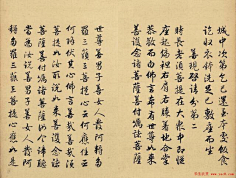 城中次第乞已還至本處飯食
訖收衣鉢洗足已敷座而坐
善現啟請分第二
時長老須菩提在大衆中即從
座起偏袒右肩右膝著地合掌
恭敬而白佛言希有世尊如來
善護念諸菩薩善付囑諸菩薩
世尊善男子善女人發阿耨多
羅三藐三菩提心應云何住云
何降伏其心佛言善哉善哉須
菩提如汝所說如來善護念諸
菩薩善付囑諸菩薩汝今諦聽
當為汝說善男子善女人發阿
耨多羅三藐三菩提心應如是